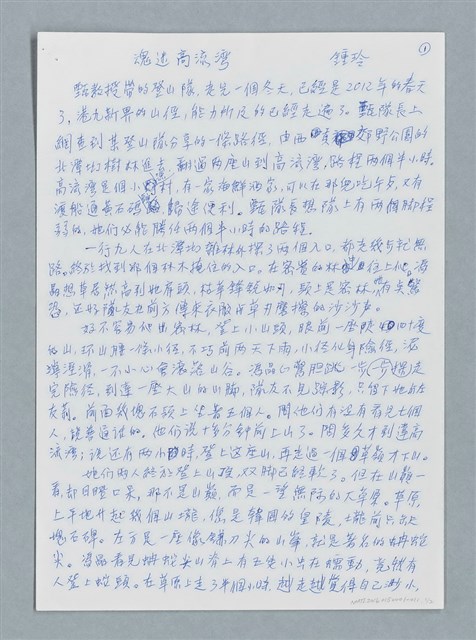 魂迷高流灣 鍾玲 ①
甄教授帶的登山隊,走完一個冬天,已經是2012年的春天
了,港九新界的山徑,能力所及的已經走遍了。甄隊長上
網查到某登山隊分享的一條路徑,由西郊野公園的
北潭坳樹林進去,翻過兩座山到高流灣,路程兩個半小時。
高流灣是個小村,有一家海鮮酒家,可以在那兒吃午歺,又有
渡船通黃石碼,路途便利。甄隊長想隊上有兩個腳程
弱的,她們必能勝任兩個半小時的路程。
一行九人在北潭坳雜林外探了兩個入口,都走幾步就無
路。終於找到那個林木掩住的入口。在密密的林往上
想草居然高到她肩頭,枯草蜂蜕如刀,頭上是密林,有
恐,還好隊友在前方傳來衣服与草刃磨擦的沙沙声。
好不容易爬出密林,登上小山頭,眼前一座陡四十度
的山,环山腰一條小徑,不巧前兩天下雨,小徑化身險徑,泥
壤溼滑,一不小心會滾落山谷。心驚胆跳一步一步走
完險徑,到達一座大山的山脚,隊友不見踪影,只留下她与女
友莉。前面幾塊石頭上坐著五個人。問他們有沒有看見七個
人,說普通話的。他們說十多分鐘前上山了。問多久才到達高
流灣;說还有兩小時,登上这座山,再走過一個嶺才一。
她們兩人終於登上山頂,双脚已經軟了。但在山巔一
看,都目瞪口呆,那不是山巔,而是一望無際的大草原。草原
上平地升起幾個山,像是韓國的皇陵,陵前只缺
塊石碑。左方是一座像鐮刀尖的山峯,就是著名的蚺蛇
尖。看見蚺蛇尖山脊上有五隻小点在蠕動,竟然有
人登上蛇頭。在草原上走了半個小時,越走越覺得自己渺小,